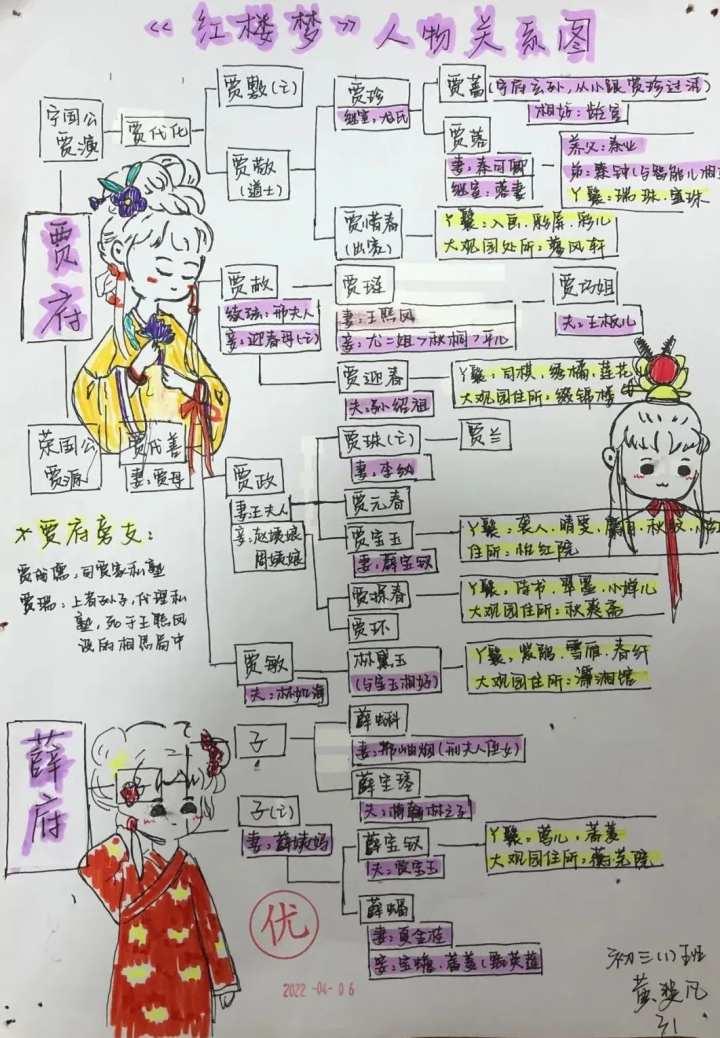 《红楼梦》人物关系图
宁国公
贾演
贾代化
贾敷(亡)
贾敬
(道士)
贾珍
继室:尤氏
贾蔷(宁府玄孙,从小跟贾珍过活)
相好:龄官
贾蓉
妻:秦可卿
继室:蓉妻
养父:秦业
弟:秦钟(与智能儿相
丫鬟:瑞珠、宝珠
贾惜春
(出家)
丫鬟:入画、彩屏、彩儿
大观园处所:蓼风轩
贾府
荣国公
贾源
贾代善
妻:贾母
贾赦
续弦:邢夫人
妾:迎春母(亡)
贾琏
妻:王熙凤
妾:尤二姐、秋桐、平儿
贾巧姐
夫:王板儿
贾迎春
夫:孙绍祖
丫鬟:司棋、绣橘、莲花
大观园住所:缀锦楼
贾政
妻:王夫人
妾:赵姨娘
周姨娘
贾珠(亡)
妻:李纨
贾兰
贾元春
贾宝玉
妻:薛宝钗
丫鬟:袭人、晴雯、麝月、秋纹、
住所:怡红院
贾探春
丫鬟:侍书、翠墨、小蝉儿
大观园住所:秋爽斋
贾环
贾敏
夫:林如海
林黛玉
(与宝玉相好)
丫鬟:紫鹃、雪雁、春纤
大观园住所:潇湘馆
*贾府旁支:
贾代儒,司贾家私塾
贾瑞:上者孙子,代理私
塾,死于王熙凤
设的相思局中
薛府
子
薛蝌
妻:邢岫烟(邢夫人侄女)
薛宝琴
夫:梅翰林之子
子(亡)
妻:薛姨妈
薛宝钗
夫:贾宝玉
丫鬟:莺儿、
大观园住所:蘅芜院
薛蟠
妻:夏金桂
妾:宝蟾、香菱(甄英莲
优
2022-04-06
初三(1)班
31